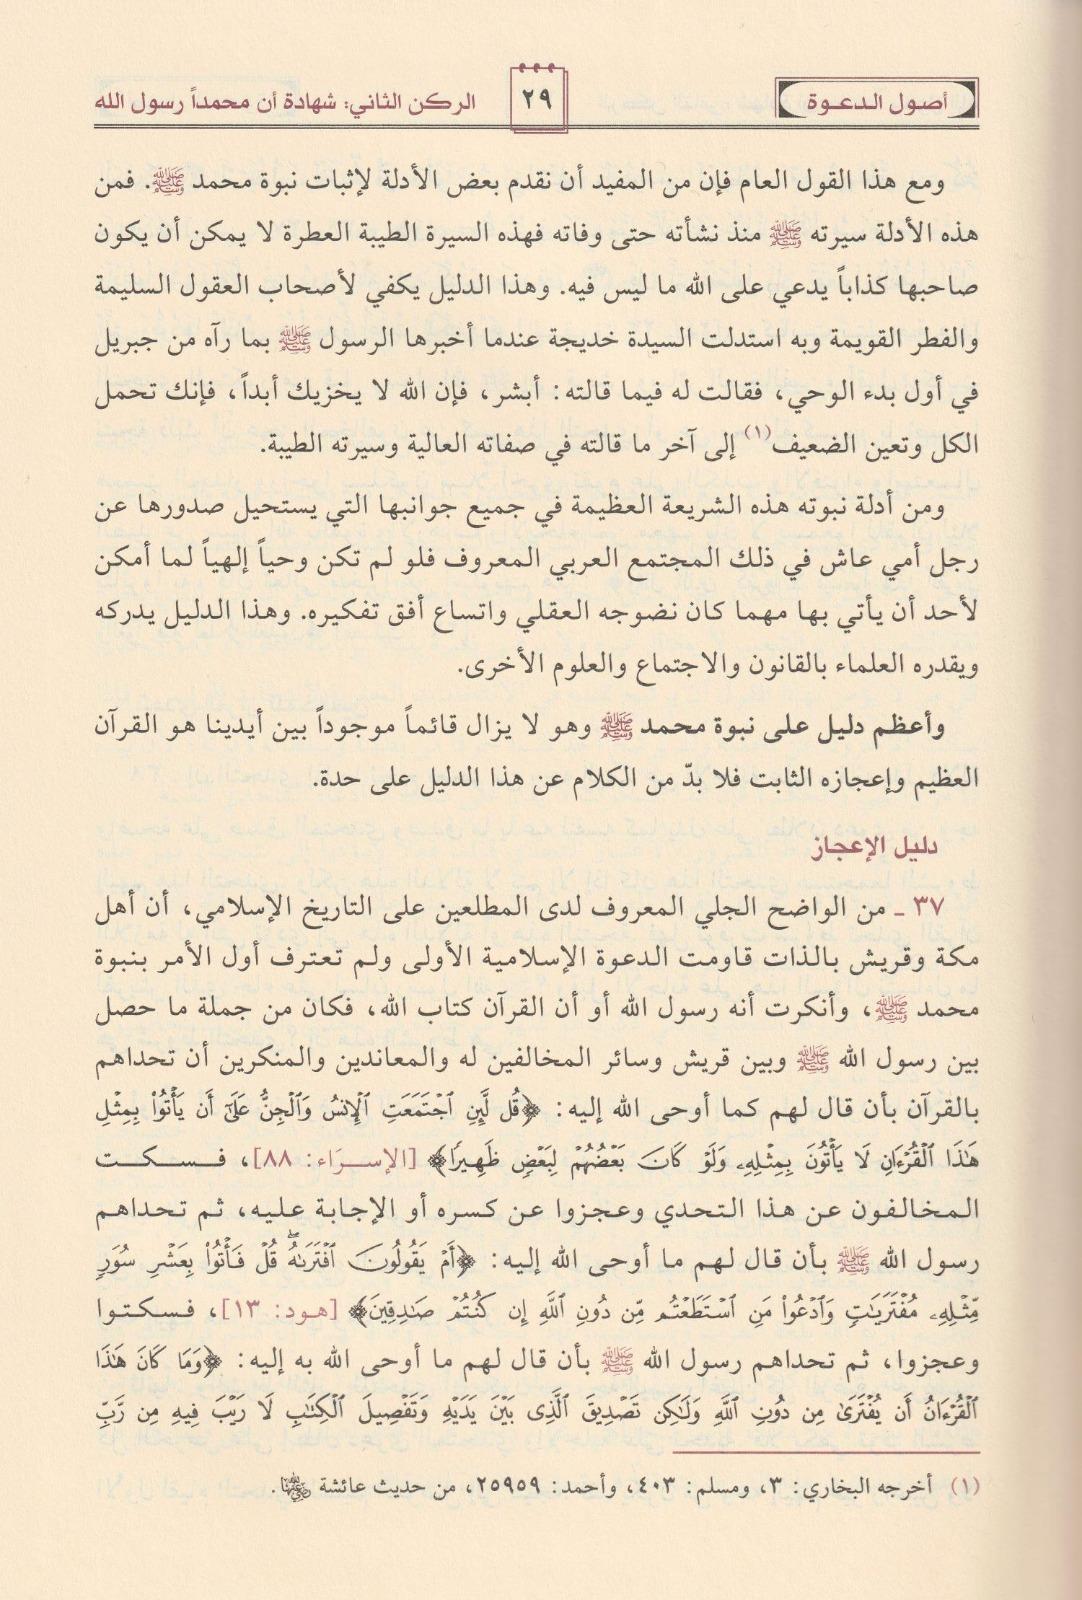 أصول الدعوة
٢٩
الركن الثاني: شهادة أن محمداً رسول الله
ومع هذا القول العام فإن من المفيد أن نقدم بعض الأدلة لإثبات نبوة محمد ﷺ. فمن
هذه الأدلة سيرته ﷺ منذ نشأته حتى وفاته فهذه السيرة الطيبة العطرة لا يمكن أن يكون
صاحبها كذاباً يدعي على الله ما ليس فيه. وهذا الدليل يكفي لأصحاب العقول السليمة
والفطر القويمة وبه استدلت السيدة خديجة عندما أخبرها الرسول ﷺ بما رآه من جبريل
في أول بدء الوحي، فقالت له فيما قالته: أبشر، فإن الله لا يخزيك أبداً، فإنك تحمل
الكل وتعين الضعيف(١) إلى آخر ما قالته في صفاته العالية وسيرته الطيبة.
ومن أدلة نبوته هذه الشريعة العظيمة في جميع جوانبها التي يستحيل صدورها عن
رجل أمي عاش في ذلك المجتمع العربي المعروف فلو لم تكن وحياً إلهياً لما أمكن
لأحد أن يأتي بها مهما كان نضوجه العقلي واتساع أفق تفكيره. وهذا الدليل يدركه
ويقدره العلماء بالقانون والاجتماع والعلوم الأخرى.
وأعظم دليل على نبوة محمد ﷺ وهو لا يزال قائماً موجوداً بين أيدينا هو القرآن
العظيم وإعجازه الثابت فلا بدّ من الكلام عن هذا الدليل على حدة.
دليل الإعجاز
٣٧ ـ من الواضح الجلي المعروف لدى المطلعين على التاريخ الإسلامي، أن أهل
مكة وقريش بالذات قاومت الدعوة الإسلامية الأولى ولم تعترف أول الأمر بنبوة
محمد ﷺ، وأنكرت أنه رسول الله أو أن القرآن كتاب الله، فكان من جملة ما حصل
بين رسول الله ﷺ وبين قريش وسائر المخالفين له والمعاندين والمنكرين أن تحداهم
بالقرآن بأن قال لهم كما أوحى الله إليه: ﴿قُل لَّئِنِ ٱجۡتَمَعَتِ ٱلۡإِنسُ وَٱلۡجِنُّ عَلَىٰٓ أَن يَأۡتُواْ بِمِثۡلِ
هَٰذَا ٱلۡقُرۡءَانِ لَا يَأۡتُونَ بِمِثۡلِهِۦ وَلَوۡ كَانَ بَعۡضُهُمۡ لِبَعۡضٖ ظَهِيرٗا﴾ [الإسرَاء: ٨٨]، فسكت
المخالفون عن هذا التحدي وعجزوا عن كسره أو الإجابة عليه، ثم تحداهم
رسول الله ﷺ بأن قال لهم ما أوحى الله إليه: ﴿أَمۡ يَقُولُونَ ٱفۡتَرَىٰهُۖ قُلۡ فَأۡتُواْ بِعَشۡرِ سُوَرٖ
مِّثۡلِهِۦ مُفۡتَرَيَٰتٖ وَٱدۡعُواْ مَنِ ٱسۡتَطَعۡتُم مِّن دُونِ ٱللَّهِ إِن كُنتُمۡ صَٰدِقِينَ﴾ [هود: ١٣]، فسكتوا
وعجزوا، ثم تحداهم رسول الله ﷺ بأن قال لهم ما أوحى الله به إليه: ﴿وَمَا كَانَ هَٰذَا
ٱلۡقُرۡءَانُ أَن يُفۡتَرَىٰ مِن دُونِ ٱللَّهِ وَلَٰكِن تَصۡدِيقَ ٱلَّذِي بَيۡنَ يَدَيۡهِ وَتَفۡصِيلَ ٱلۡكِتَٰبِ لَا رَيۡبَ فِيهِ مِن رَّبِّ
(١) أخرجه البخاري: ٣، ومسلم: ٤٠٣، وأحمد: ٢٥٩٥٩، من حديث عائشة رضي الله عنها.